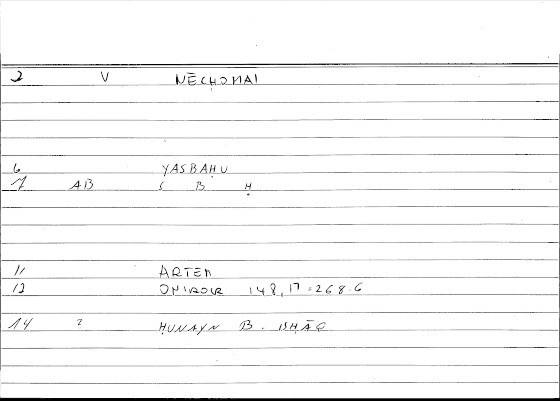 2 V NĒCHOMAI
6 YASBAḤU
7 AB S B Ḥ
11 ARTEM
12 ONIROCR 148,17 = 268.6
14 ? ḤUNAYN B. ISḤĀQ